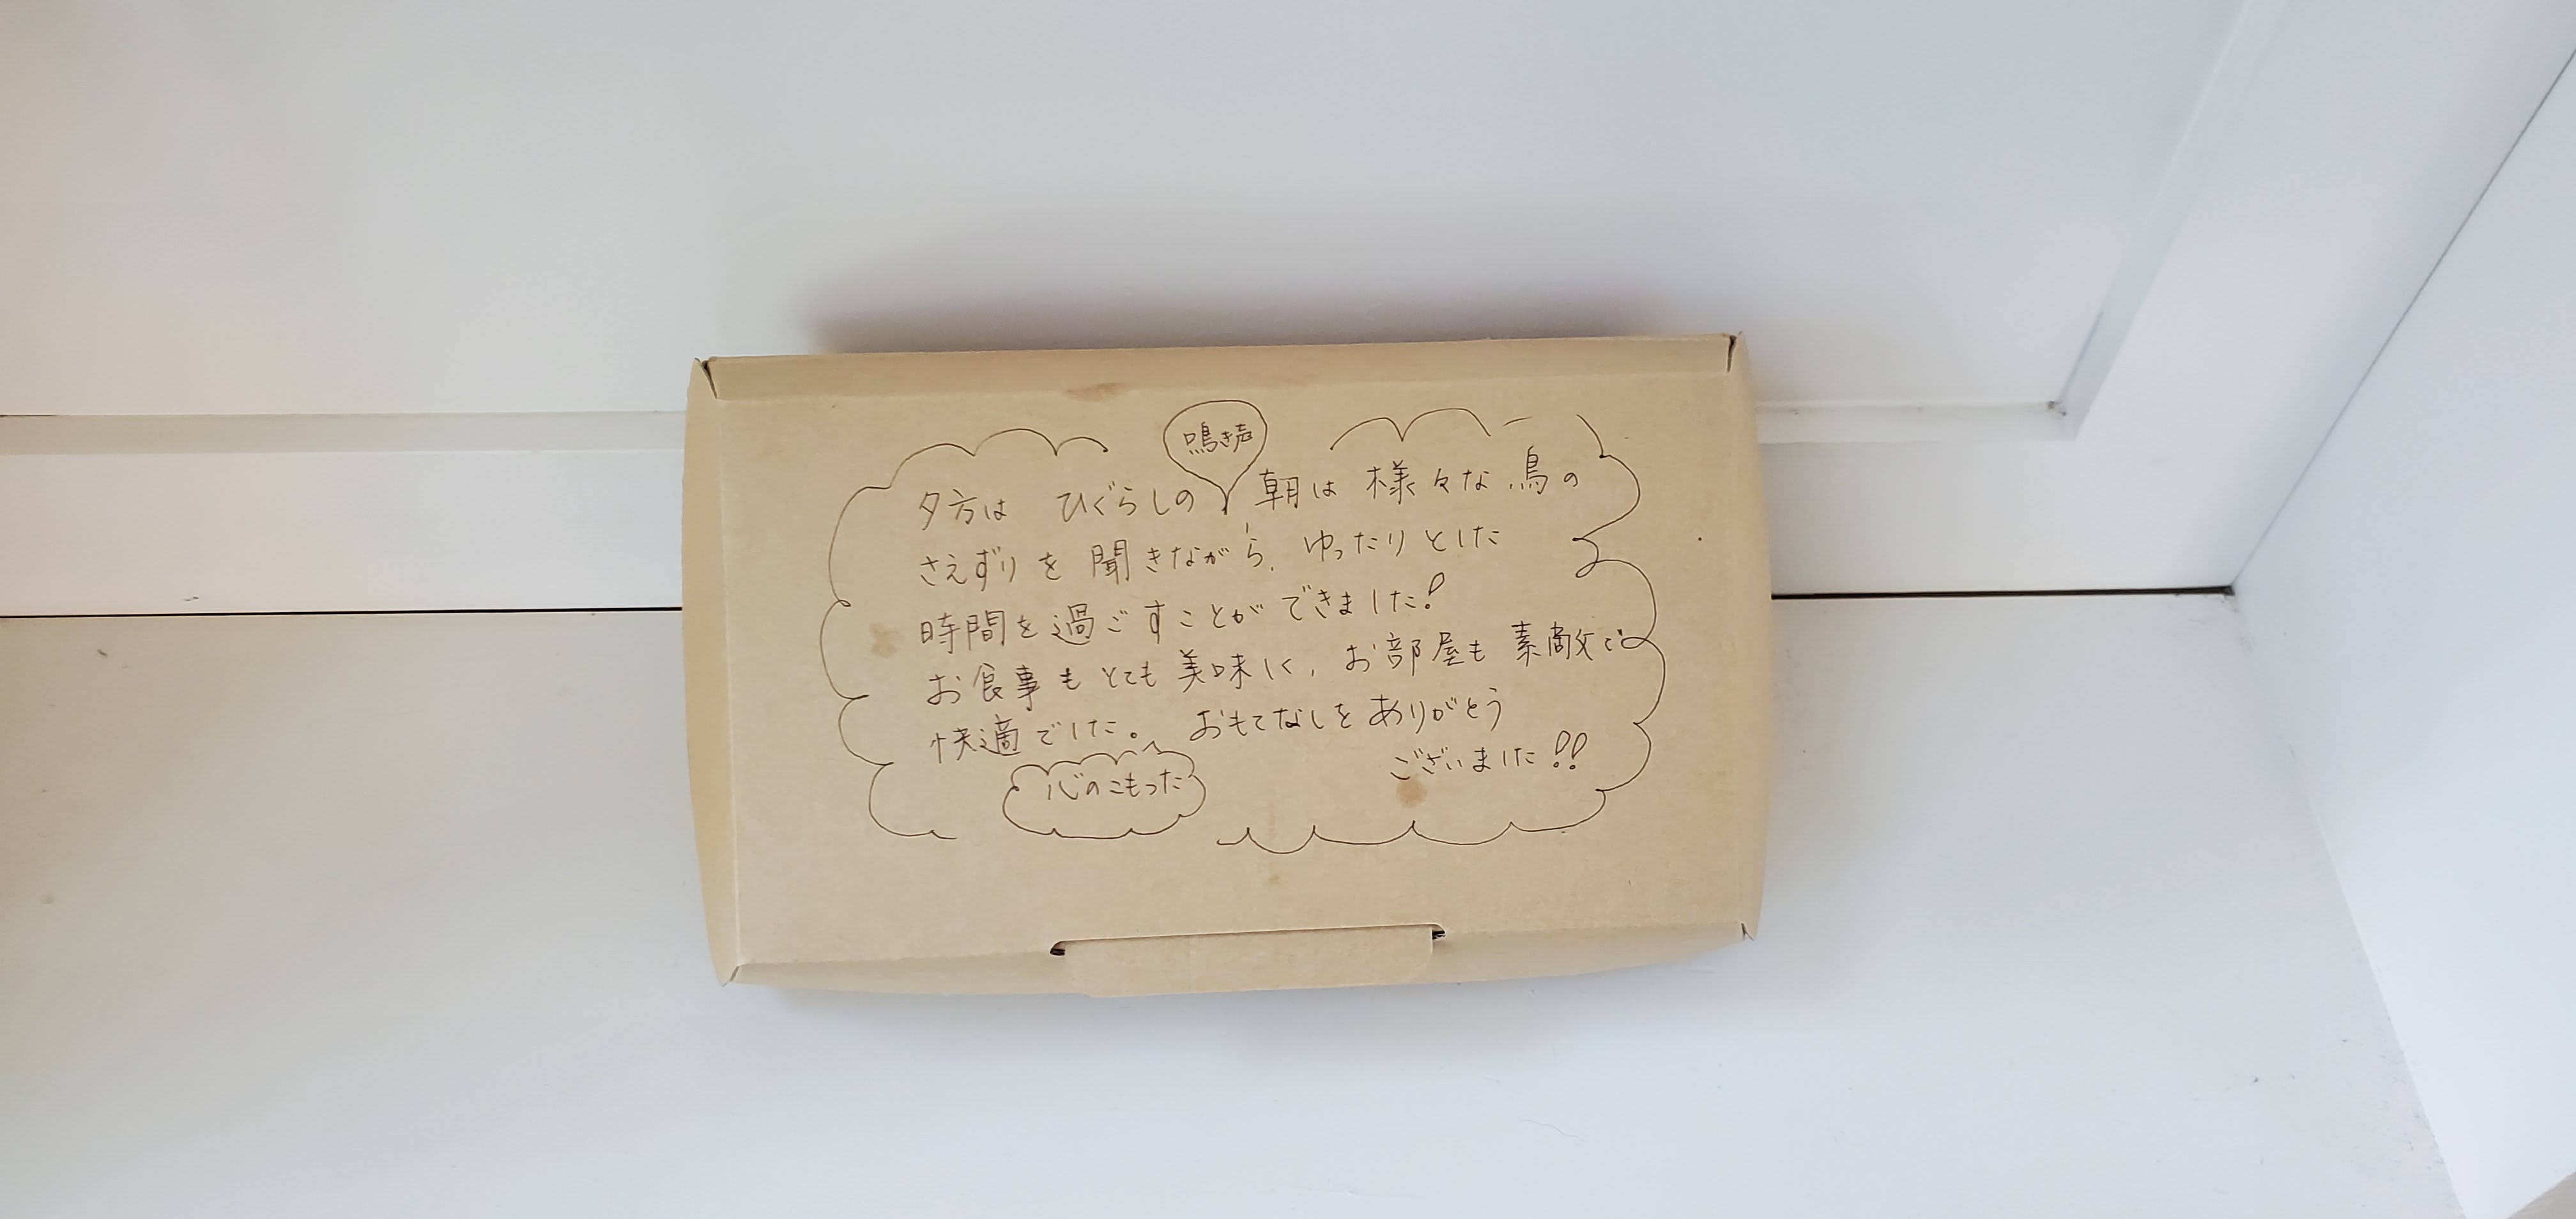 鳴き声
夕方は ひぐらしの 朝は 様々な 鳥の
さえずりを 聞きながら、ゆったりとした
時間を過ごすことが できました!
お食事も とても 美味しく、お部屋も 素敵で
快適でした。 おもてなしを ありがとう
ございました!!
心のこもった